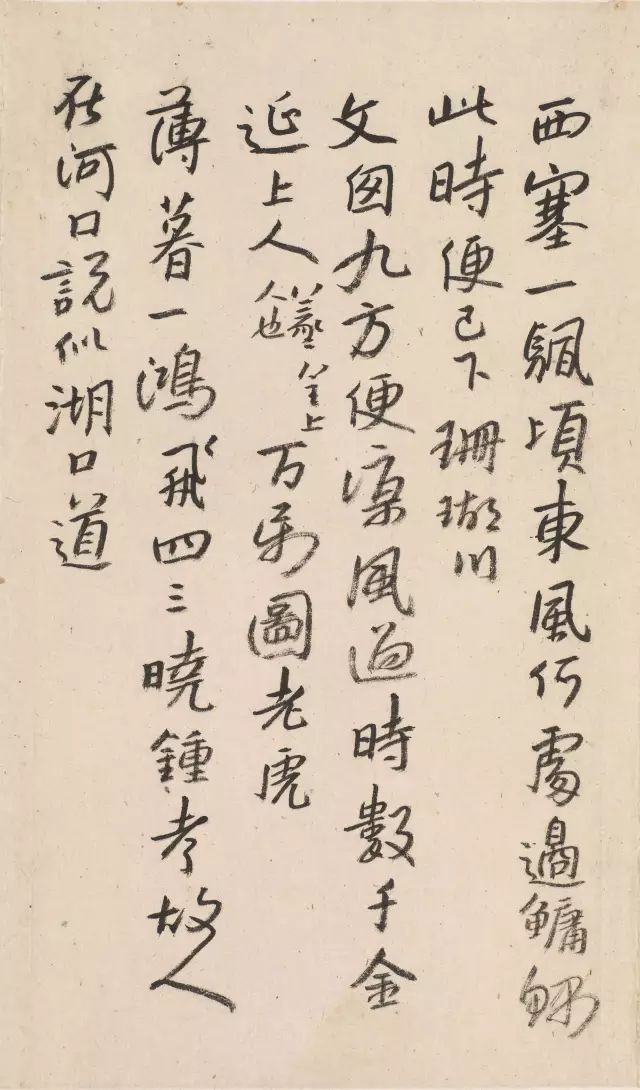 西塞一颿頃東風何處過鱅鰥
此時便已下珊瑚川
文囱九方便涼風過時數千金
延上人 人也 坐上 万 圖老虎
薄暮一鴻飛四三曉鍾考故人
在河口說似湖口道